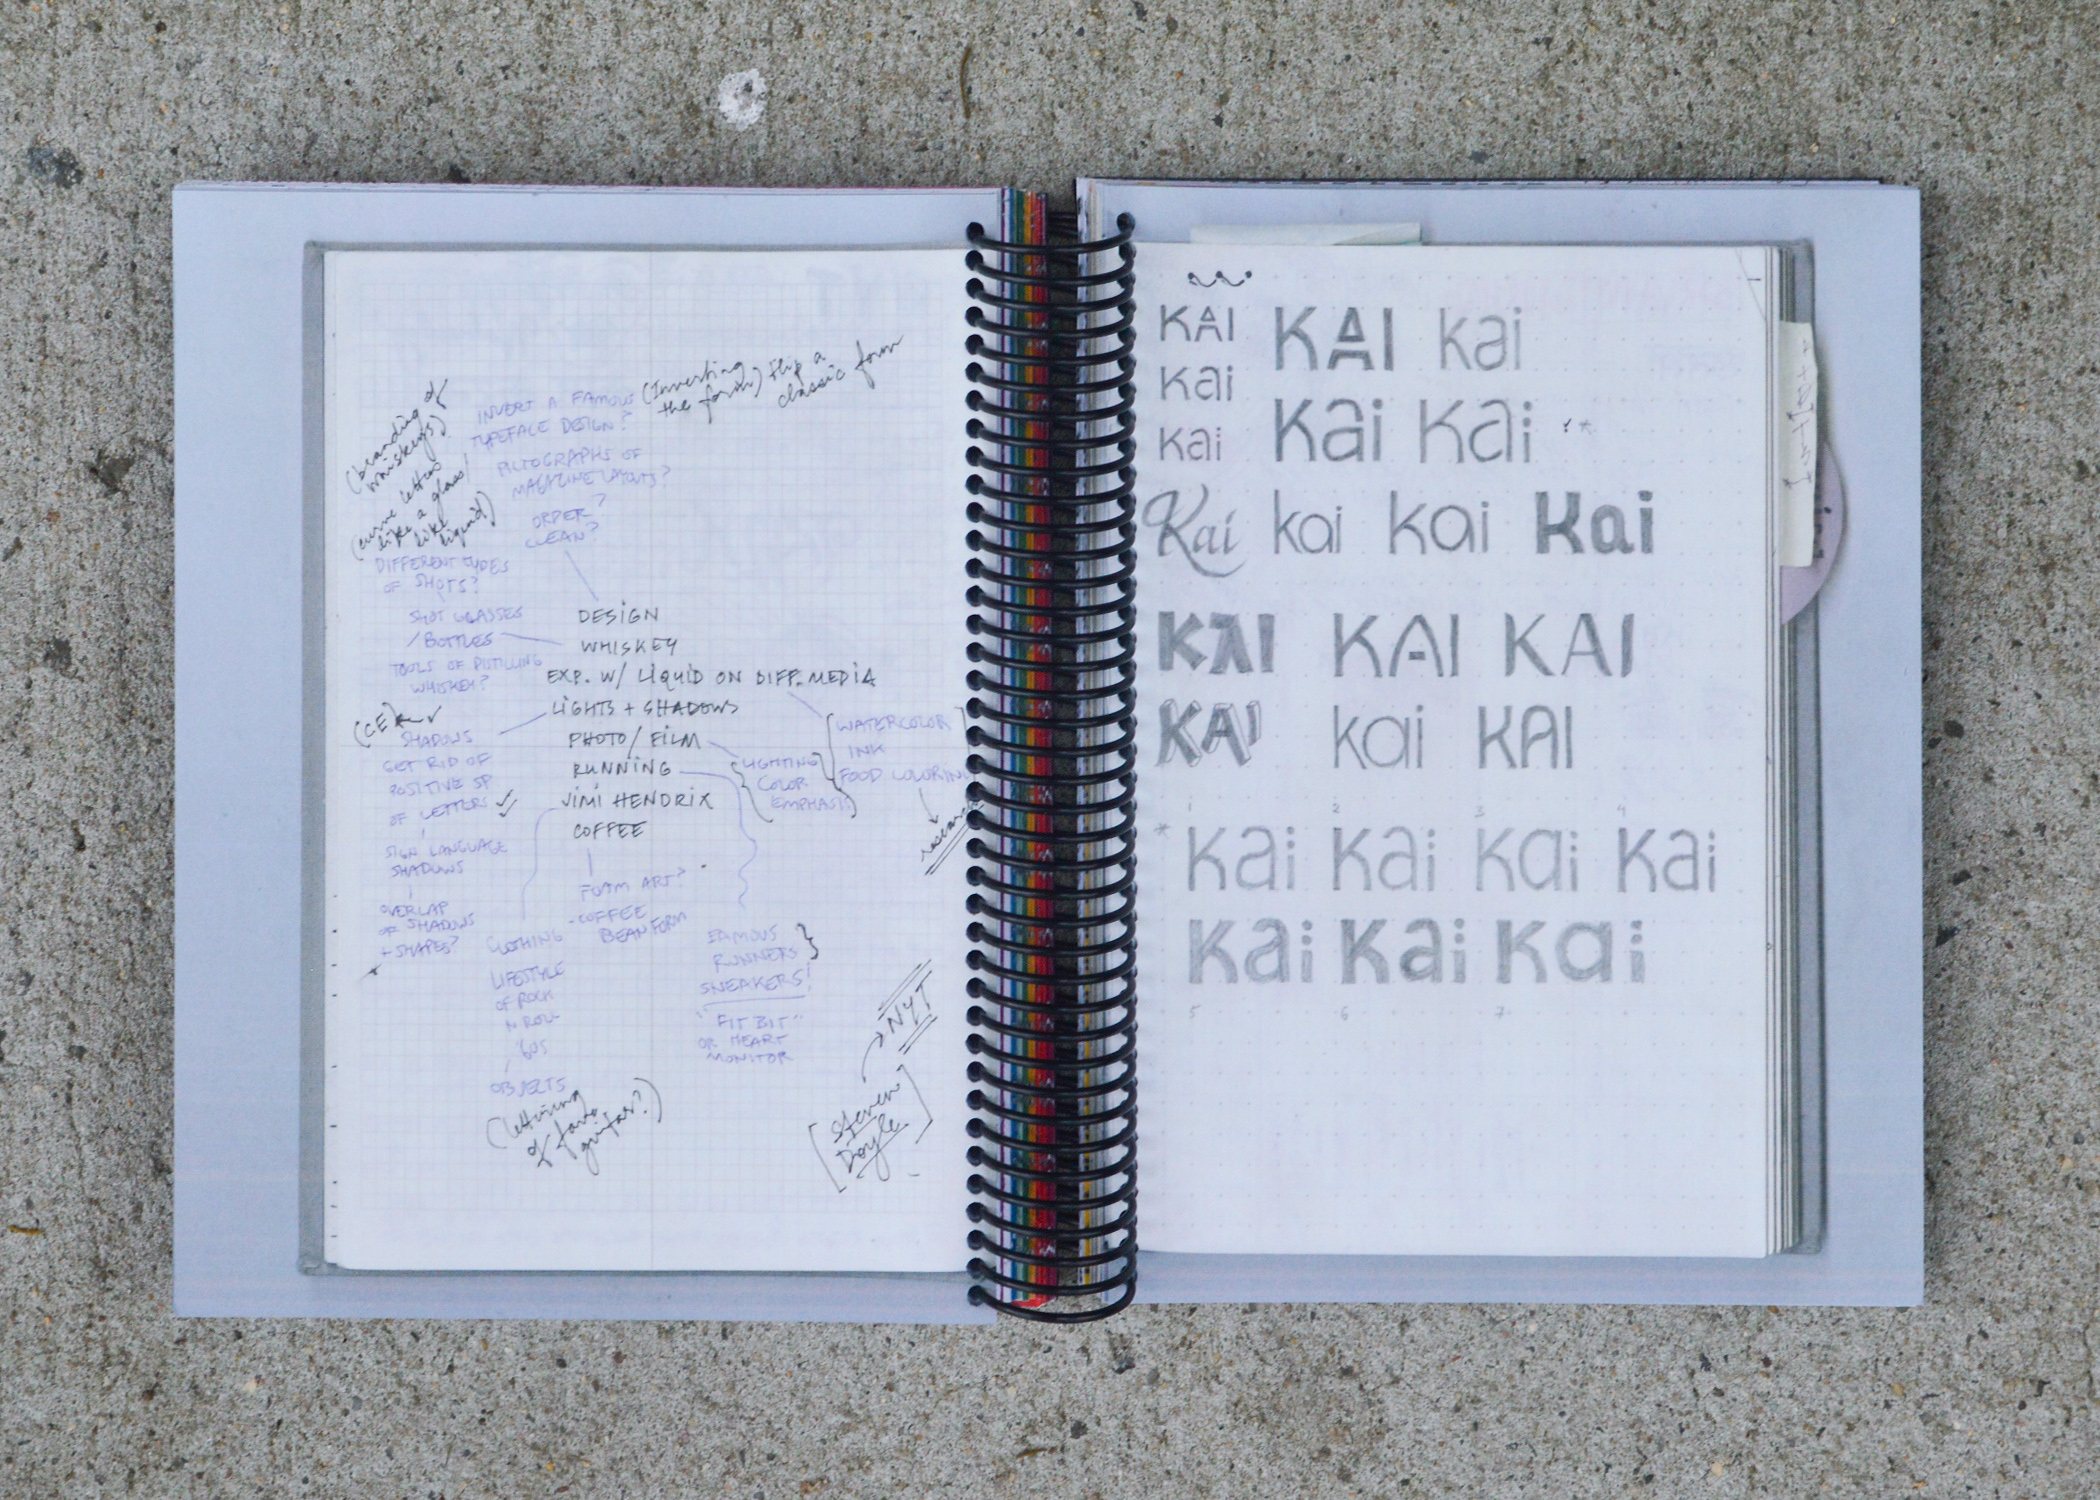 (branding of
whiskeys)
(curve letters
like a glass/
like
liquid!)
INVERT A FAMOUS
TYPEFACE DESIGN?
(Inverting
the form) flip a
classic form
PICTOGRAPHS OF
MAGAZINE LAYOUTS?
ORDER?
CLEAN?
DIFFERENT TYPES
OF SHOTS?
SHOT GLASSES
/BOTTLES
TOOLS OF DISTILLING
WHISKEY?
DESIGN
WHISKEY
EXP. W/ LIQUID ON DIFF. MEDIA
LIGHTS + SHADOWS
PHOTO/FILM
RUNNING
JIMI HENDRIX
COFFEE
(CE)
SHADOWS
GET RID OF
POSITIVE SP
OF LETTERS
SIGN LANGUAGE
SHADOWS
OVERLAP
OF SHADOWS
+ SHAPES?
WATERCOLOR
INK
FOOD COLORING
research
LIGHTING
COLOR
EMPHASIS
FOAM ART?
-COFFEE
BEAN FORM
CLOTHING
LIFESTYLE
OF ROCK
N ROLL
'60S
OBJECTS
(lettering
of favo
guitar?)
FAMOUS
RUNNERS
SNEAKERS!
"FIT BIT"
OR HEART
MONITOR
NYT
[Steven
Doyle]
KAI KAI kai
kai
kai kai kai *
Kai kai kai Kai
KAI KAI KAI
KAI kai KAI
1 2 3 4
* kai kai kai kai
kai kai kai
5 6 7